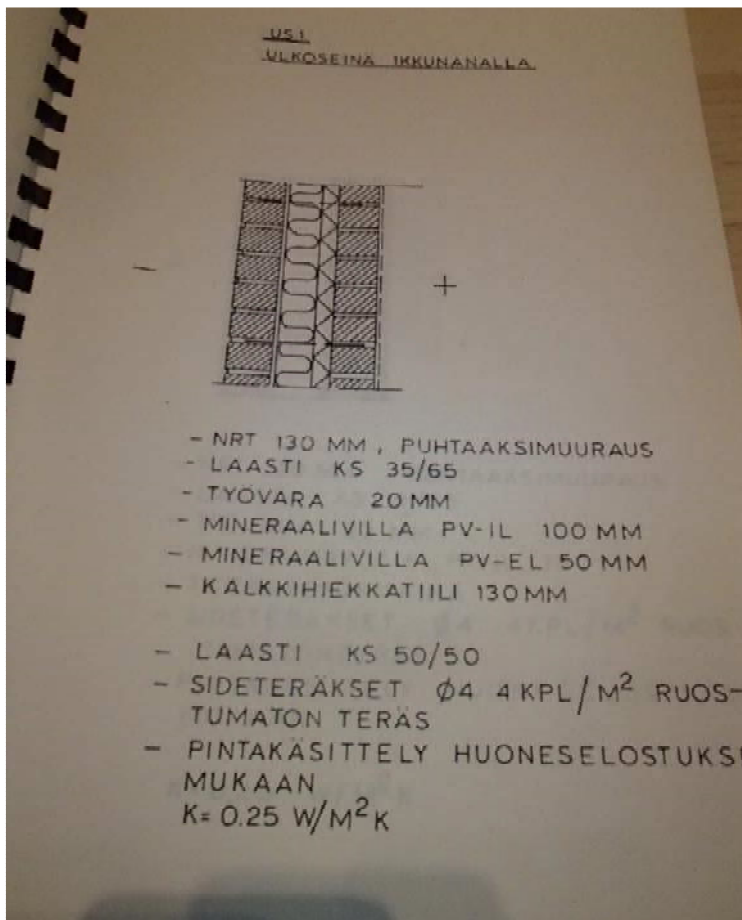 US1
ULKOSEINÄ IKKUNANALLA
-
+
- NRT 130 MM, PUHTAAKSIMUURAUS
- LAASTI KS 35/65
- TYÖVARA 20 MM
- MINERAALIVILLA PV-IL 100 MM
- MINERAALIVILLA PV-EL 50 MM
- KALKKIHIEKKATIILI 130 MM
- LAASTI KS 50/50
- SIDETERÄKSET Ø4 4 KPL/M² RUOS-
TUMATON TERÄS
- PINTAKÄSITTELY HUONESELOSTUKS
MUKAAN
K= 0.25 W/M²K